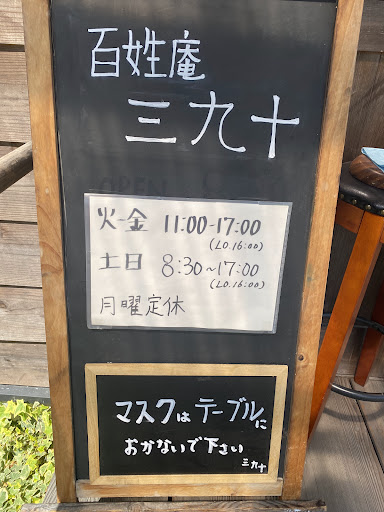 百姓庵
三九十
OPEN
火-金 11:00-17:00
(LO.16:00)
土日 8:30~17:00
(LO.16:00)
月曜定休
マスクはテーブルに
おかないで下さい
三九十